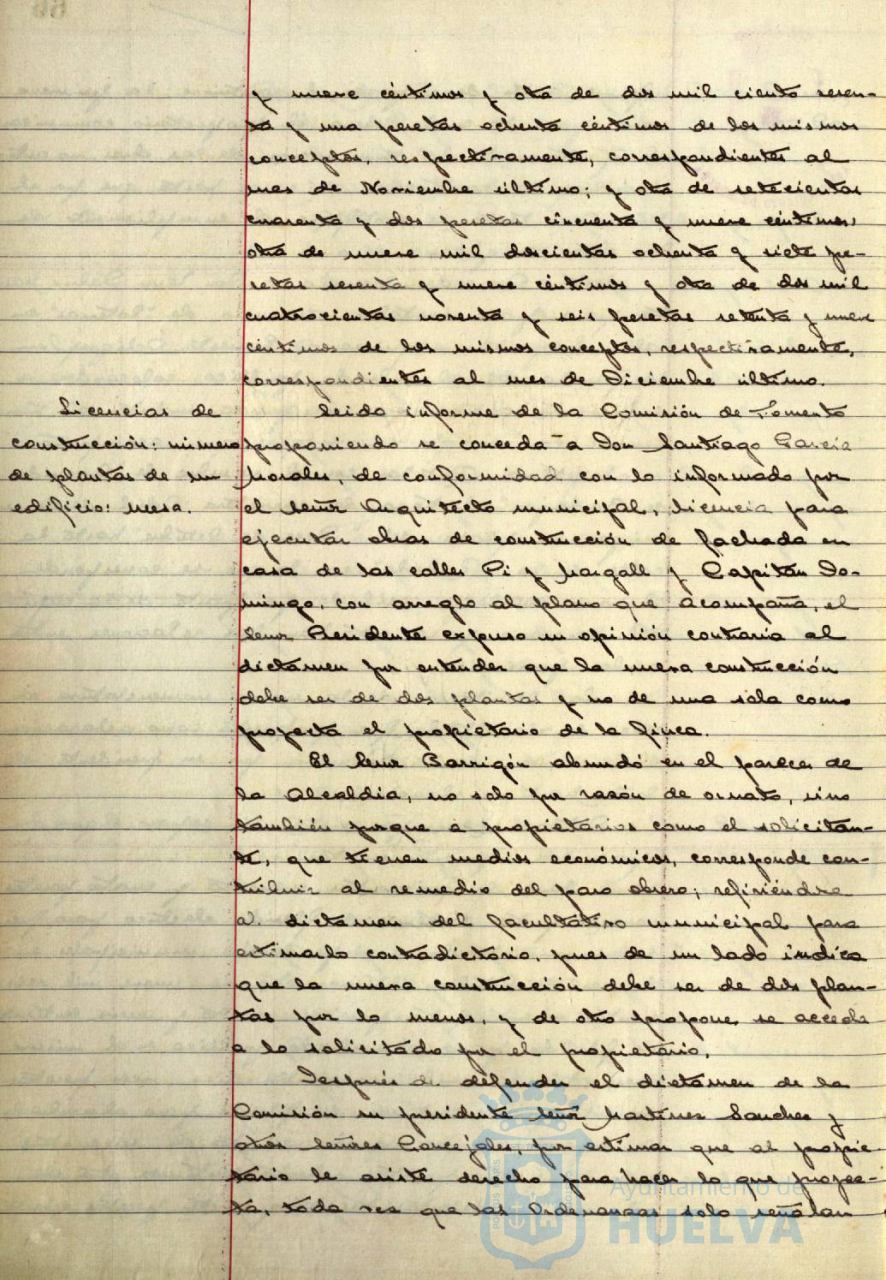 y nueve céntimos y otra de dos mil ciento sesen-
ta y una pesetas ochenta céntimos de los mismos
conceptos, respectivamente, correspondientes al
mes de Noviembre último; y otra de setecientas
cuarenta y dos pesetas cincuenta y nueve céntimos;
otra de nueve mil doscientas ochenta y siete pe-
setas sesenta y nueve céntimos y otra de dos mil
cuatrocientas noventa y seis pesetas setenta y nueve
céntimos de los mismos conceptos, respectivamente,
correspondientes al mes de Diciembre último.
Licencias de
construcción: número
de plantas de un
edificio: nueva.
Leido informe de la Comisión de Fomento
proponiendo se conceda a Don Santiago García
Morales, de conformidad con lo informado por
el Señor Arquitecto municipal, licencia para
ejecutar obras de construcción de fachada en
casa de las calles Pi y Margall y Capitán Do-
mingo, con arreglo al plano que acompaña, el
Señor Presidente expuso su opinión contraria al
dictamen por entender que la nueva construcción
debe ser de dos plantas y no de una sola como
proyecta el propietario de la finca.
El Señor Barrigón abundó en el parecer de
la Alcaldía, no solo por razón de ornato, sino
también porque a propietarios como el solicitan-
te, que tienen medios económicos, corresponde con-
tribuir al remedio del paro obrero; refiriéndose
al dictamen del facultativo municipal para
estimarlo contradictorio, pues de un lado indica
que la nueva construcción debe ser de dos plan-
tas por lo menos, y de otro propone se acceda
a lo solicitado por el propietario.
Después de defender el dictamen de la
Comisión su presidente Señor Martinez Sanchez y
otros Señores Concejales, por estimar que al propie-
tario le asiste derecho para hacer lo que proyec-
ta, toda vez que las Ordenanzas solo señalan
Ayuntamiento de
HUELVA